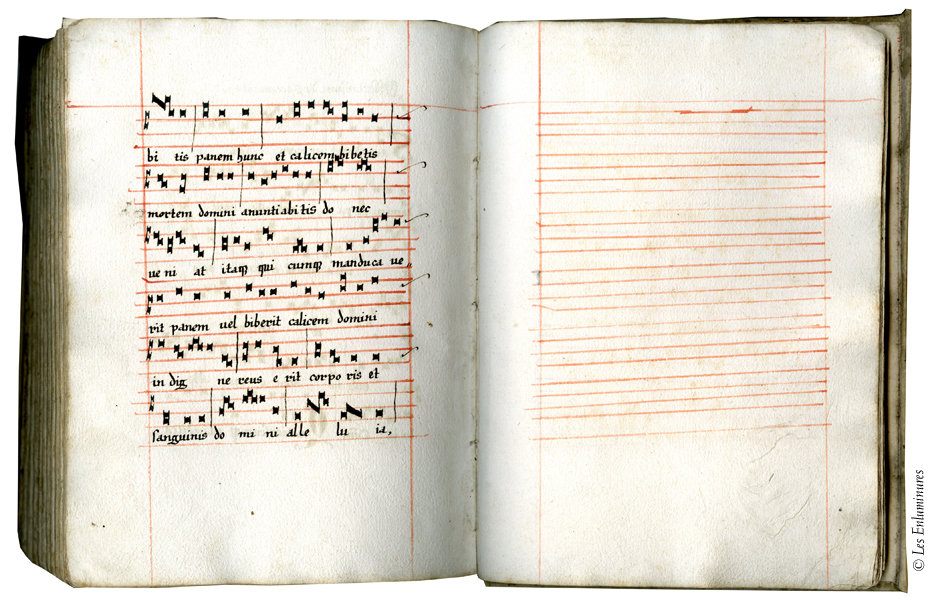 bi tis panem hunc et calicem bibetis
mortem domini anuntiabi tis do nec
ue ni at itaqꝫ qui cumqꝫ manduca ue
rit panem uel biberit calicem domini
in dig ne reus e rit corpo ris et
sanguinis do mi ni alle lu ia,
© Les Enluminures